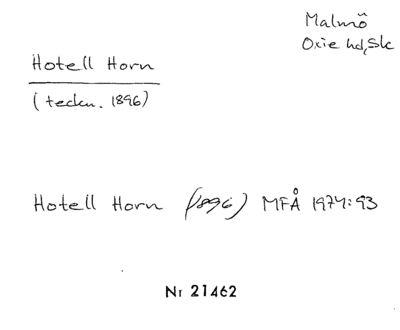 Malmö
Oxie hd, Sk
Hotell Horn
(teckn. 1896)
Hotell Horn (1896) MFÅ 1974:93
Nr 21462